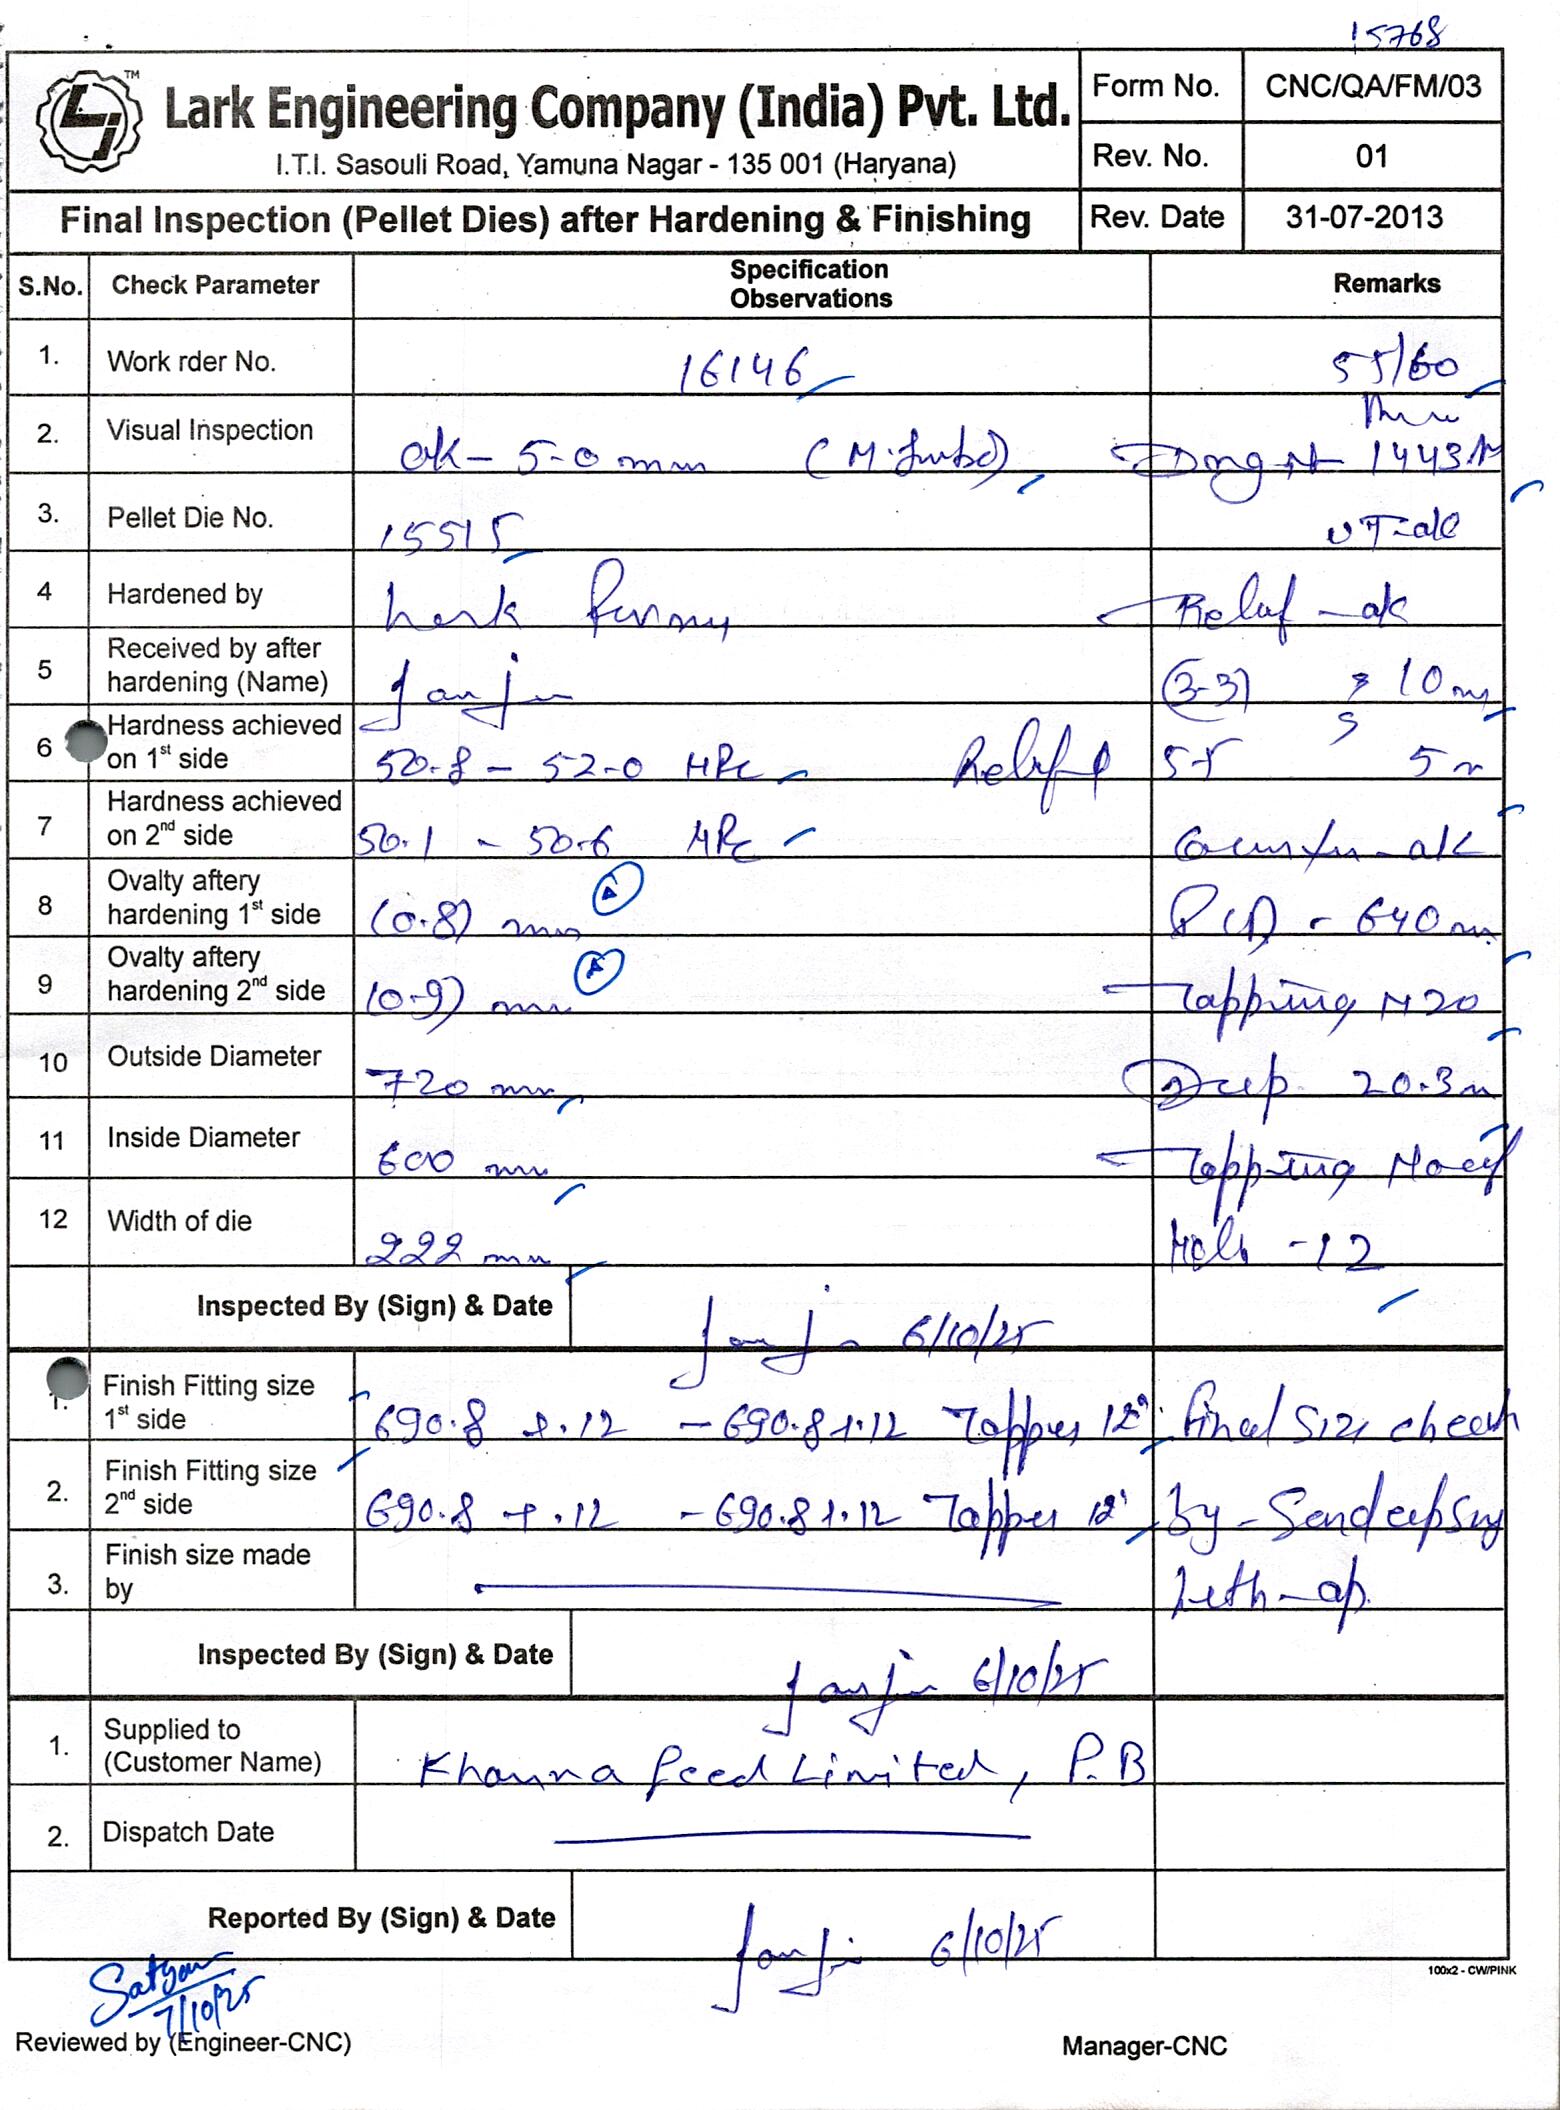 15768
Lark Engineering Company (India) Pvt. Ltd.
TM
I.T.I. Sasouli Road, Yamuna Nagar - 135 001 (Haryana)
Form No. CNC/QA/FM/03
Rev. No. 01
Final Inspection (Pellet Dies) after Hardening & Finishing Rev. Date 31-07-2013
S.No. Check Parameter Specification Observations Remarks
1. Work rder No. 16146 55/60
2. Visual Inspection ok - 5.0 mm Drg No 1443M
3. Pellet Die No. 15515 UT-ok
4 Hardened by Relief - ok
5 Received by after hardening (Name) (3-3) 10 m
6 Hardness achieved on 1st side 50.8 - 52.0 HRC Relief 5-5 5 m
7 Hardness achieved on 2nd side 50.1 - 50.6 HRC - ok
8 Ovalty aftery hardening 1st side (0.8) mm A PCD - 640 m
9 Ovalty aftery hardening 2nd side (0.9) mm A Tapping M20
10 Outside Diameter 720 mm Deep 20.3 m
11 Inside Diameter 600 mm Tapping
12 Width of die 222 mm Hole - 12
Inspected By (Sign) & Date 6/10/25
1. Finish Fitting size 1st side 690.8 +.12 - 690.8 +.12 Tapper 12° Final Size check
2. Finish Fitting size 2nd side 690.8 +.12 - 690.8 +.12 Tapper 12° by - Sandeep
3. Finish size made by
Inspected By (Sign) & Date 6/10/25
1. Supplied to (Customer Name) Khanna feed Limited, P.B
2. Dispatch Date
Reported By (Sign) & Date 6/10/25
100x2 - CW/PINK
Satyam
7/10/25
Reviewed by (Engineer-CNC) Manager-CNC